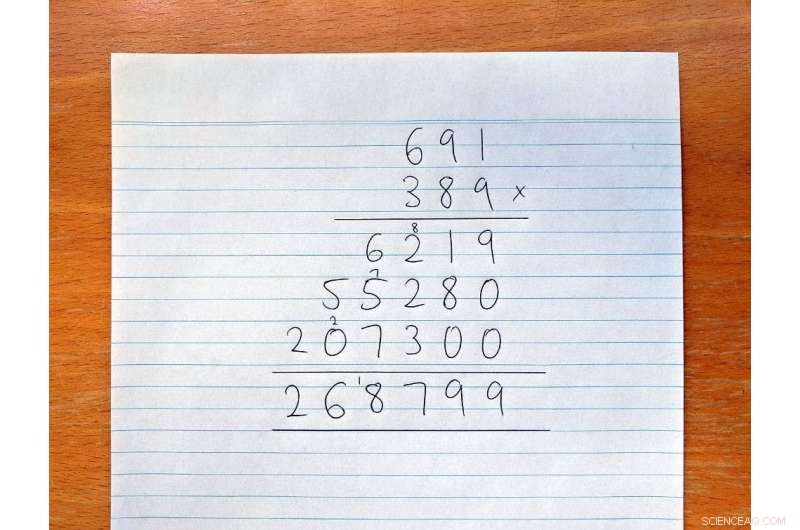 691
389 ×
8
6219
7
55280
2
207300
1
268799
SCIENCEAQ.COM